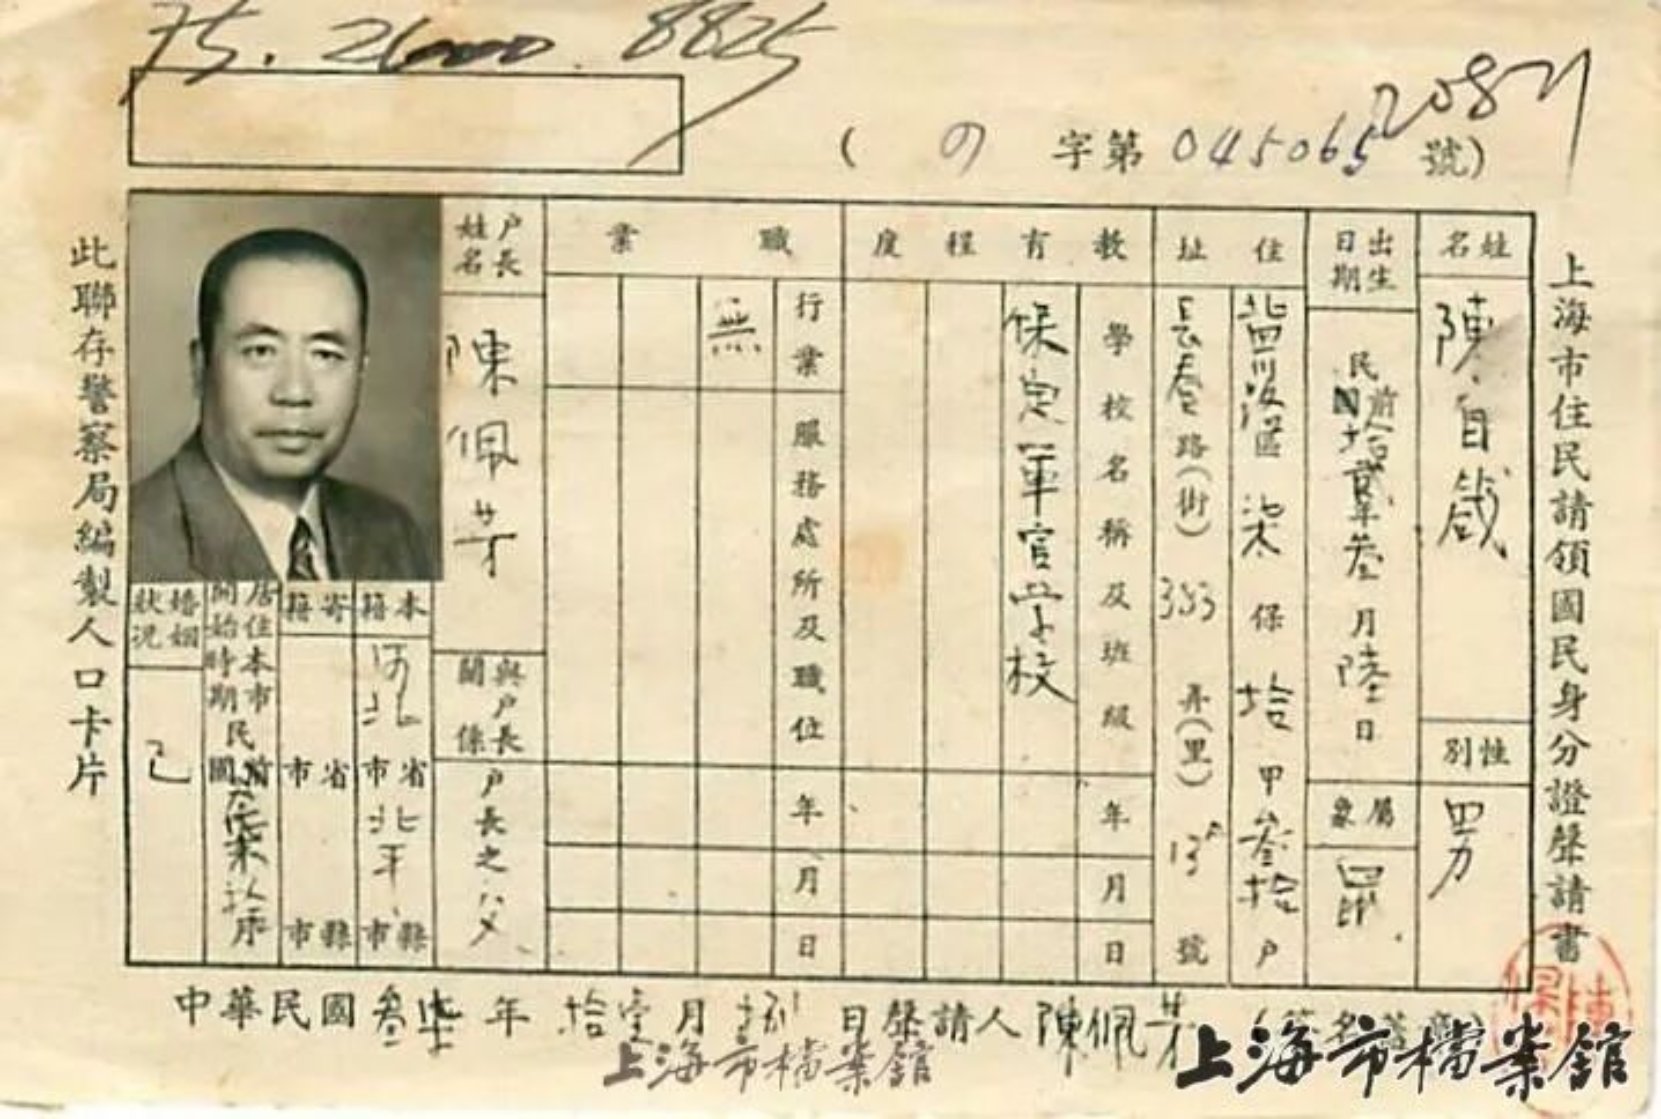 75. 2600. 8825
2087
(の字第045065號)
上海市住民請領國民身分證聲請書
姓名
陳自
性別
男
出生日期
民國前拾 年叁月陸日
屬象
住址
區 柒保拾甲叁拾戶
長春路(街)353弄(里)13號
教育程度
學校名稱及班級
年
月
日
保定軍官學校
職業
行業
服務處所及職位
年
月
日
無
戶長姓名
陳佩芳
與戶長關係
戶長之父
本籍
河北省市
北平縣市
寄籍
省市
縣市
居住本市開始時期
民國
婚姻狀況
已
此聯存警察局編製人口卡片
中華民國叁柒年拾壹月 日聲請人陳佩芳
上海市檔案館
上海市檔案館